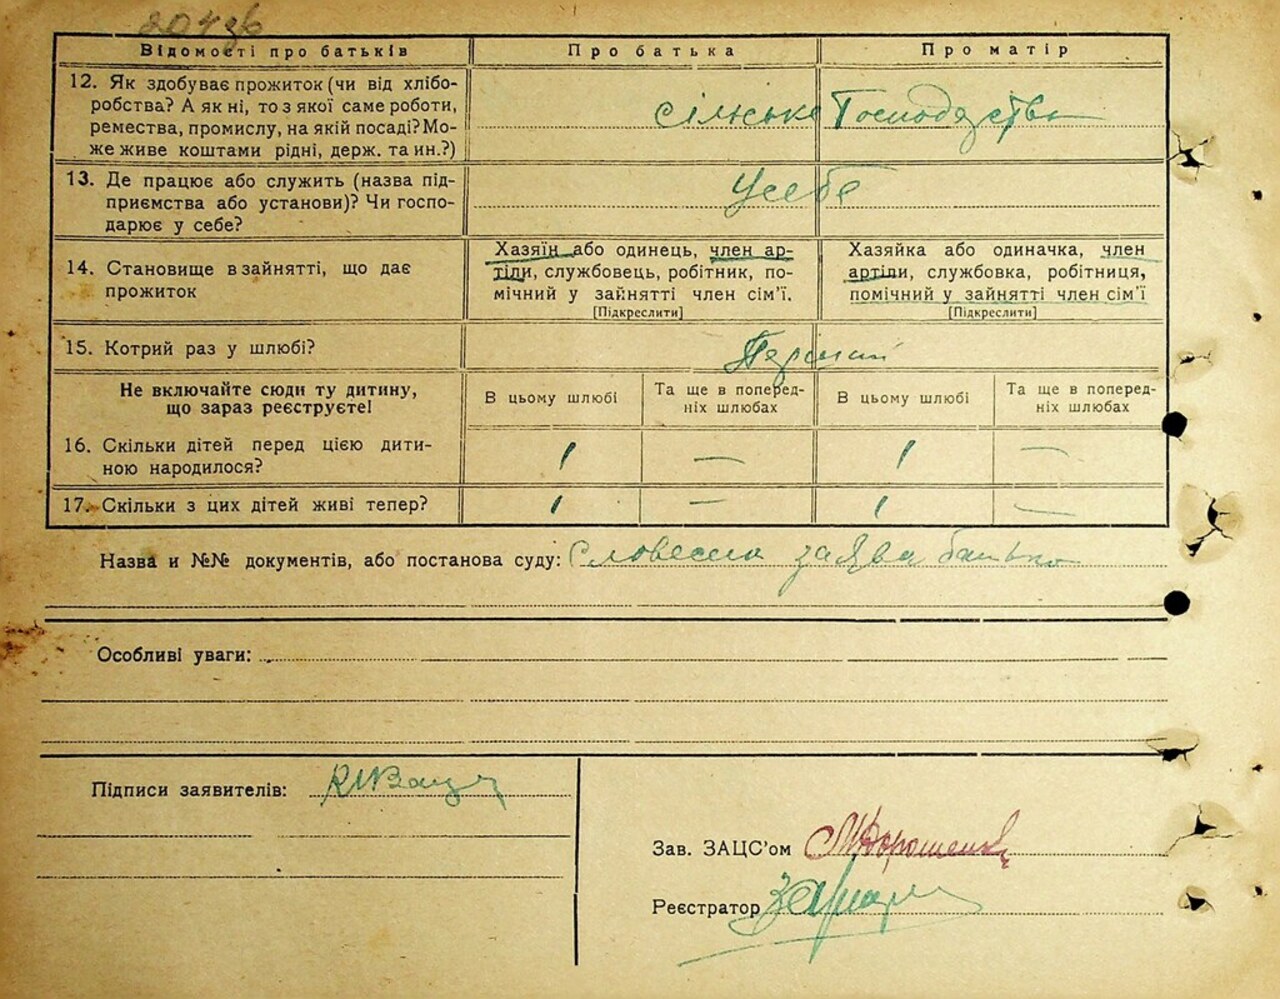 Відомості про батьків Про батька Про матір
12. Як здобуває прожиток (чи від хлібо-
робства? А як ні, то з якої саме роботи,
ремества, промислу, на якій посаді? Мо-
же живе коштами рідні, держ. та ин.?)
сільське Господарство
13. Де працює або служить (назва під-
приємства або установи)? Чи госпо-
дарює у себе?
У себе
14. Становище в зайнятті, що дає
прожиток
Хазяїн або одинець, член ар-
тіли, службовець, робітник, по-
мічний у зайнятті член сім'ї.
[Підкреслити]
Хазяйка або одиначка, член
артіли, службовка, робітниця,
помічний у зайнятті член сім'ї
[Підкреслити]
15. Котрий раз у шлюбі? Перший
Не включайте сюди ту дитину,
що зараз реєструєте!
В цьому шлюбі
Та ще в поперед-
ніх шлюбах
В цьому шлюбі
Та ще в поперед-
ніх шлюбах
16. Скільки дітей перед цією дити-
ною народилося?
1 — 1 —
17. Скільки з цих дітей живі тепер? 1 — 1 —
Назва и №№ документів, або постанова суду: Словесна заява батька
Особливі уваги:
Підписи заявителів:
Зав. ЗАЦС'ом Дорошенко
Реєстратор